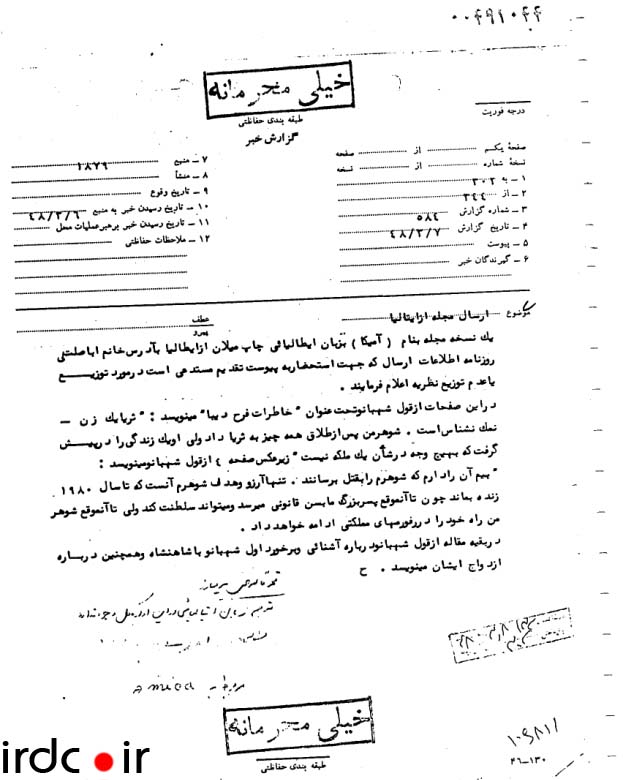 ۰۰۴۹۱۰۴۴
خیلی محرمانه
طبقه بندی حفاظتی
گزارش خبر
درجه فوریت
صفحهٔ یکم از صفحه
نسخهٔ شماره از نسخه
۱ - به ۳۰۲
۲ - از ۳٤٤
۳ - شماره گزارش ۵۸٤
۴ - تاریخ گزارش ٤۸/۳/۷
۵ - پیوست
۶ - گیرندگان خبر
۷ - منبع ۱۸۷۹
۸ - منشأ
۹ - تاریخ وقوع
۱۰ - تاریخ رسیدن خبر به منبع ٤۸/۳/٦
۱۱ - تاریخ رسیدن خبر برهبر عملیات محل
۱۲ - ملاحظات حفاظتی
موضوع ارسال مجله ازایتالیا
عطف
پیرو
یك نسخه مجله بنام ( آمیکا ) بزبان ایطالیائی چاپ میلان ازایطالیا بآدرس خانم اباصلتی
روزنامه اطلاعات ارسال که جهت استحضاربه پیوست تقدیم مستدعی است درمورد توزیــــع
یاعدم توزیع نظریه اعلام فرمایند .
دراین صفحات ازقول شهبانوتحت عنوان " خاطرات فرح دیبا" مینویسد : " ثریایك زن –
نمك نشناس است . شوهرمن پس ازطلاق همه چیز به ثریا داد ولی اویك زندگی رادرپیــــش
گرفت که بهیچ وجه درشأن یك ملکه نیست " زیرعکس صفحه ٤ ازقول شهبانومینویسد :
" بیم آن رادارم که شوهرم رابقتل برسانند . تنهاآرزو وهدف شوهرم آنست که تاسال ۱۹۸۰
زنده بماند چون تاآنموقع پسربزرگ مابسن قانونی میرسد ومیتواند سلطنت کند ولی تاآنموقع شوهر
من راه خود را دررفورمهای مملکتی ادامه خواهد داد .
دربقیه مقاله ازقول شهبانود رباره آشنائی وبرخورد اول شهبانو باشاهنشاه وهمچنین درباره
ازدواج ایشان مینویسد . ح
خیلی محرمانه
طبقه بندی حفاظتی
۴۶-۱۳۰
irdc.ir